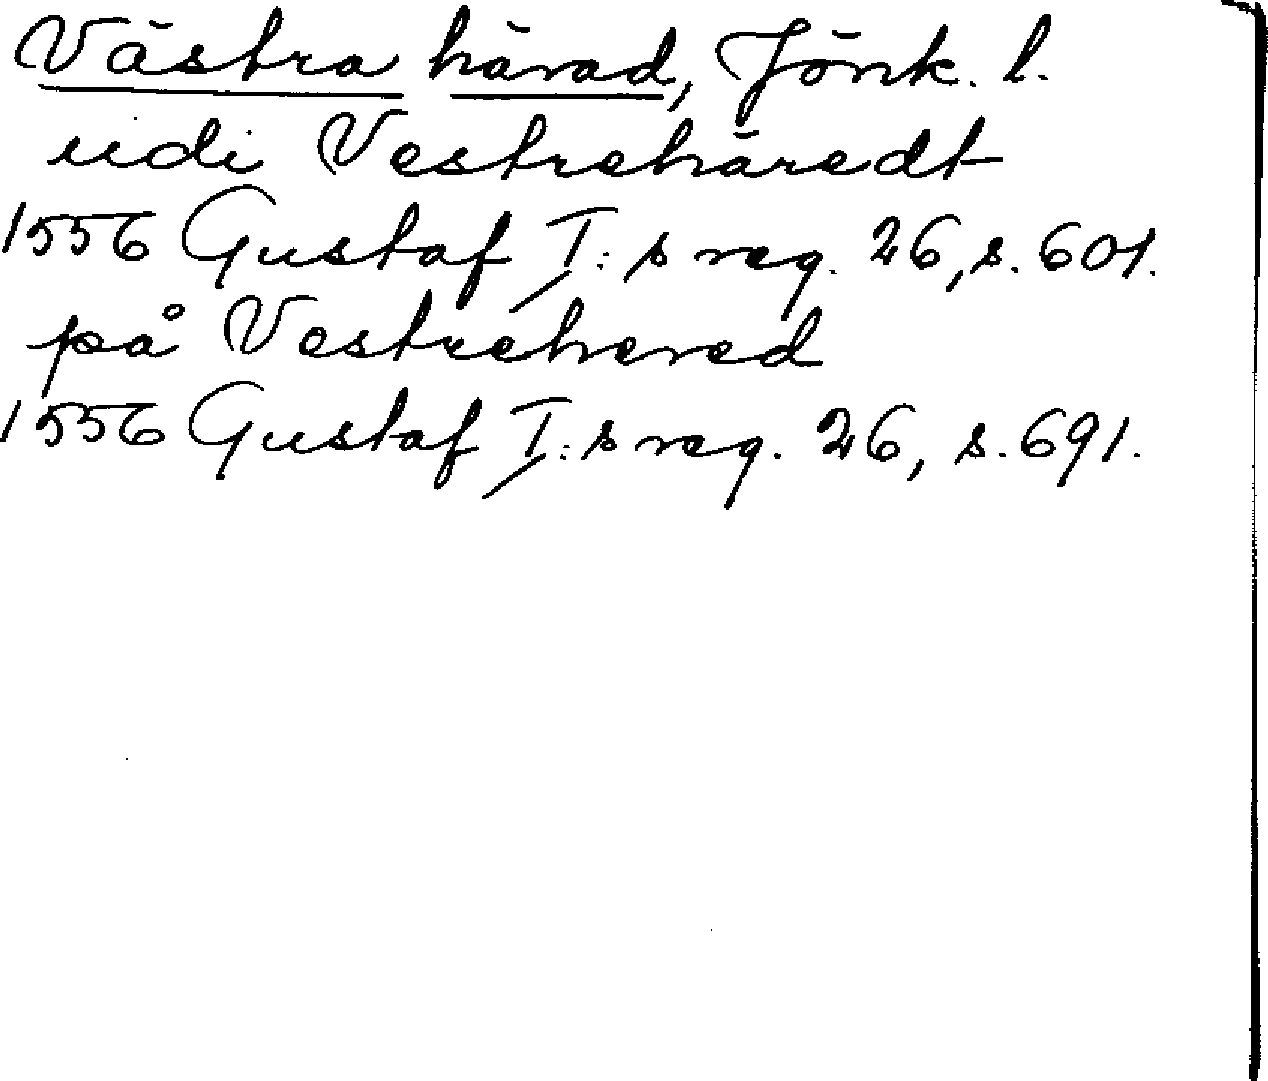 Västra härad, Jönk. l.
udi Vestrehäredt
1556 Gustaf I:s reg. 26, s. 601.
på Vestrehered
1556 Gustaf I:s reg. 26, s. 691.